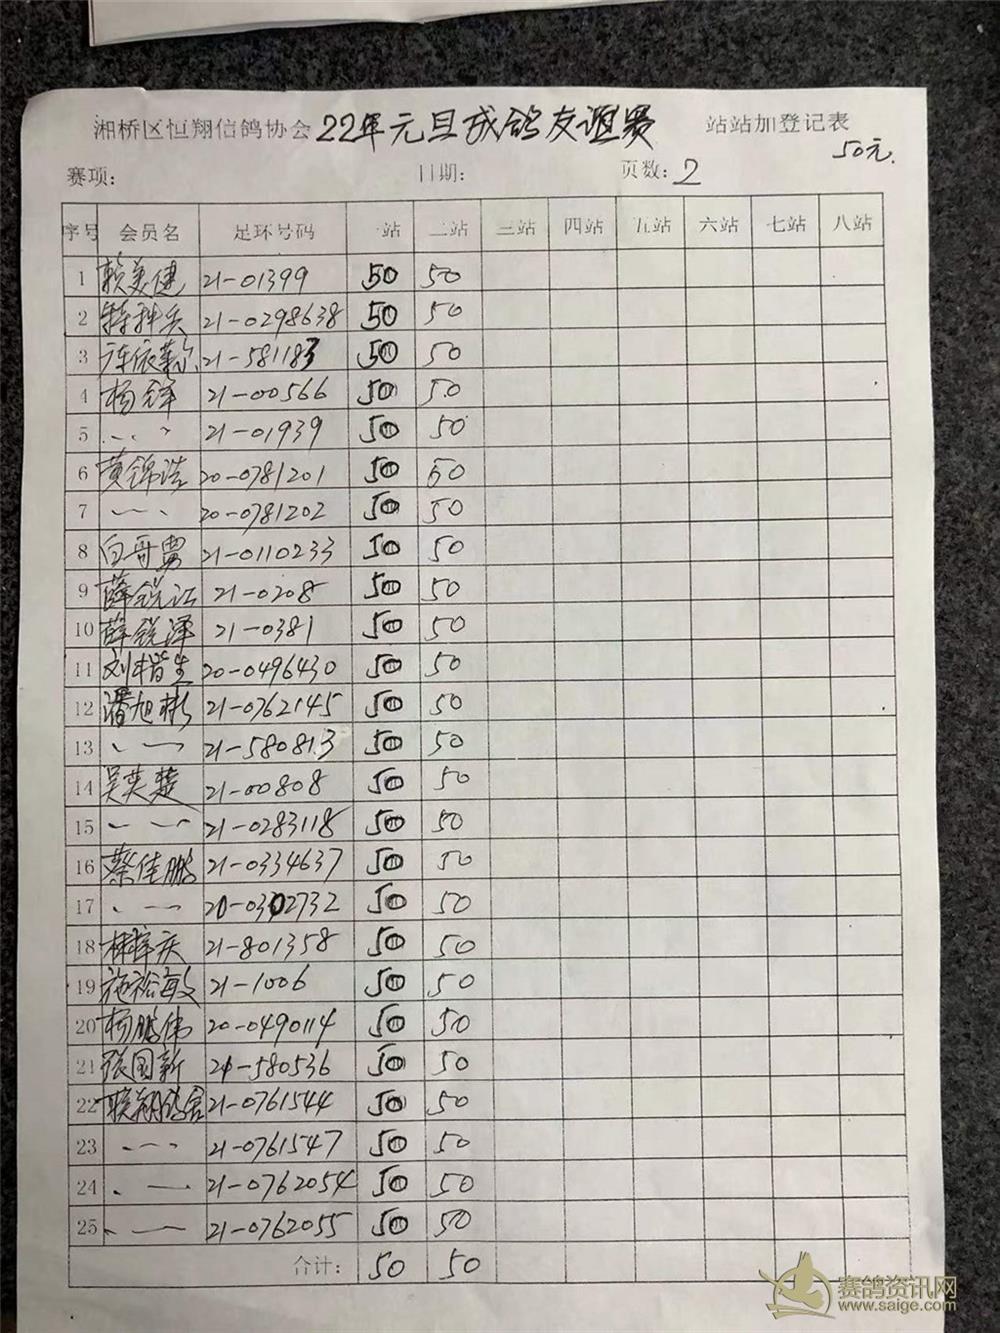 湘桥区恒翔信鸽协会 22年元旦成鸽友谊赛 站站加登记表
50元.
赛项: 日期: 页数: 2
序号 会员名 足环号码 一站 二站 三站 四站 五站 六站 七站 八站
1 赖美健 21-01399 50 50
2 特种兵 21-0298638 50 50
3 21-581183 50 50
4 杨锋 21-00566 50 50
5 21-01939 50 50
6 黄锦浩 20-0781201 50 50
7 20-0781202 50 50
8 白哥男 21-0110233 50 50
9 薛锐江 21-0208 50 50
10 薛锐泽 21-0381 50 50
11 刘楷生 20-0496430 50 50
12 潘旭彬 21-0762145 50 50
13 21-580813 50 50
14 吴英楚 21-00808 50 50
15 21-0283118 50 50
16 蔡佳鹏 21-0334637 50 50
17 20-0302732 50 50
18 林梓庆 21-801358 50 50
19 施裕敏 21-1006 50 50
20 杨鹏伟 20-0490114 50 50
21 张国新 21-580536 50 50
22 联翔鸽舍 21-0761544 50 50
23 21-0761547 50 50
24 21-0762054 50 50
25 21-0762055 50 50
合计: 50 50
赛鸽资讯网
www.saige.com